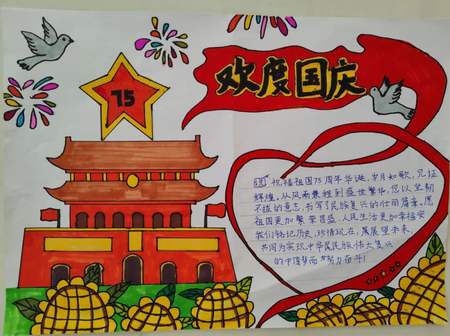 75
欢度国庆
祝福祖国75周年华诞,岁月如歌,见证
辉煌,从风雨兼程到盛世繁华,您以坚韧
不拔的意志,书写了民族复兴的壮丽篇章。愿
祖国更加繁荣富强,人民生活更加幸福安
我们铭记历史,珍惜现在,展望未来,
共同为实现中华民族伟大复兴
的中国梦而努力奋斗!